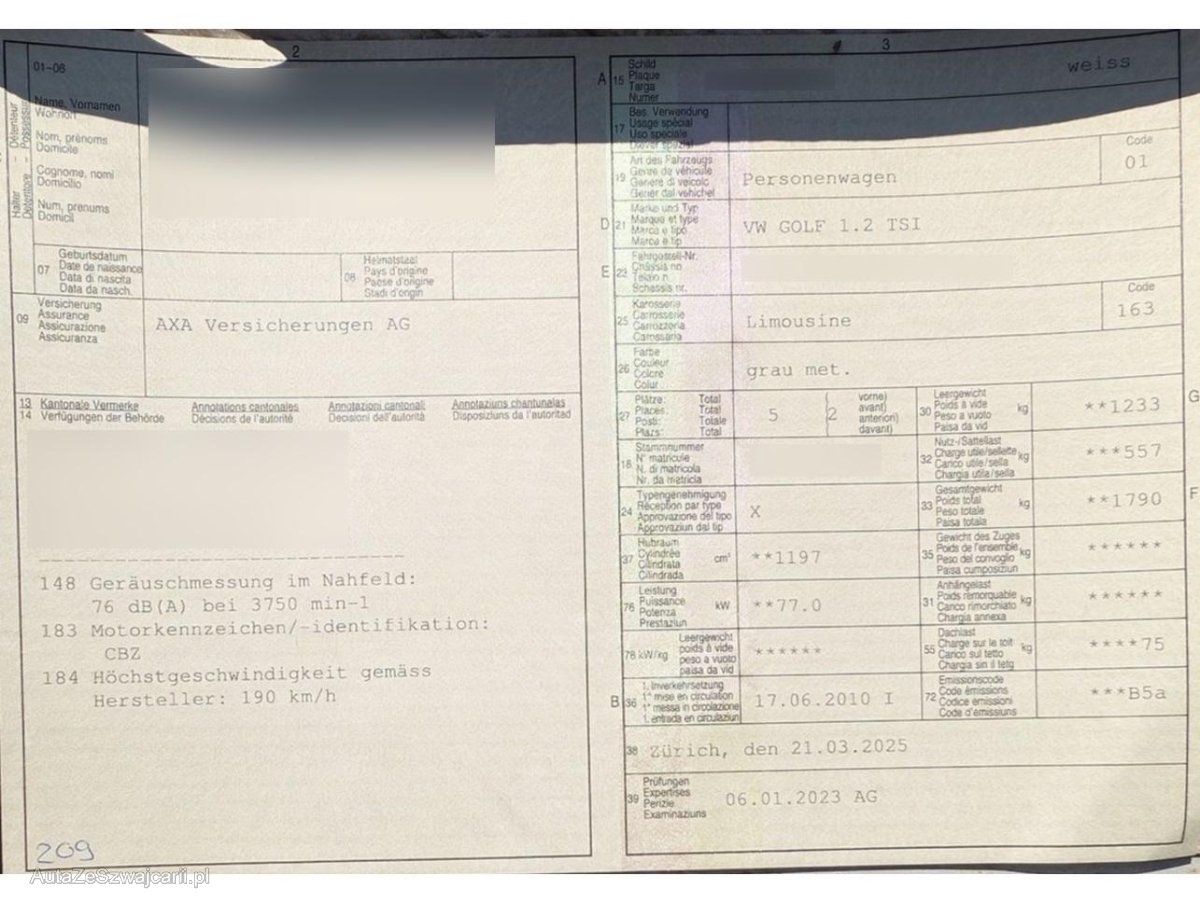 2
01-06
Name, Vornamen
Wohnort
Nom, prénoms
Domicile
Cognome, nomi
Domicilio
Num, prenums
Domicil
07
Geburtsdatum
Date de naissance
Data di nascita
Data da nasch.
08
Heimatstaat
Pays d'origine
Paese d'origine
Stadi d'origin
09
Versicherung
Assurance
Assicurazione
Assicuranza
AXA Versicherungen AG
13 Kantonale Vermerke Annotations cantonales Annotazioni cantonali Annotaziuns chantunalas
14 Verfügungen der Behörde Décisions de l'autorité Decisioni dell'autorità Disposiziuns da l'autoritad
148 Geräuschmessung im Nahfeld:
76 dB(A) bei 3750 min-1
183 Motorkennzeichen/-identifikation:
CBZ
184 Höchstgeschwindigkeit gemäss
Hersteller: 190 km/h
209
AutaZeSzwajcarii.pl
3
A 15
Schild
Plaque
Targa
Numer
weiss
17
Bes. Verwendung
Usage spécial
Uso speciale
Diever spezial
19
Art des Fahrzeugs
Genre de véhicule
Genere di veicolo
Gener dal vehichel
Personenwagen
Code
01
D 21
Marke und Typ
Marque et type
Marca e tipo
Marca e tip
VW GOLF 1.2 TSI
E 23
Fahrgestell-Nr.
Châssis no
Telaio n.
Schassis nr.
25
Karosserie
Carrosserie
Carrozzeria
Carossaria
Limousine
Code
163
26
Farbe
Couleur
Colore
Colur
grau met.
27
Plätze: Total
Places: Total
Posti: Totale
Plazs: Total
5
2
vorne)
avant)
anteriori)
davant)
30
Leergewicht
Poids à vide
Peso a vuoto
Paisa da vid
kg
**1233
G
18
Stammnummer
N° matricule
N. di matricola
Nr. da matricla
32
Nutz-/Sattellast
Charge utile/sellette
Carico utile/sella
Chargia utila/sella
kg
***557
24
Typengenehmigung
Réception par type
Approvazione del tipo
Approvaziun dal tip
X
33
Gesamtgewicht
Poids total
Peso totale
Paisa totala
kg
**1790
F
37
Hubraum
Cylindrée
Cilindrata
Cilindrada
cm³
**1197
35
Gewicht des Zuges
Poids de l'ensemble
Peso del convoglio
Paisa cumposiziun
kg
******
76
Leistung
Puissance
Potenza
Prestaziun
kW
**77.0
31
Anhängelast
Poids remorquable
Carico rimorchiato
Chargia annexa
kg
******
78 kW/kg
Leergewicht
poids à vide
peso a vuoto
paisa da vid
******
55
Dachlast
Charge sur le toit
Carico sul tetto
Chargia sin il tetg
kg
****75
B 36
1. Inverkehrsetzung
1re mise en circulation
1a messa in circolazione
1. entrada en circulaziun
17.06.2010 I
72
Emissionscode
Code émissions
Codice emissioni
Code d'emissiuns
***B5a
38
Zürich, den 21.03.2025
39
Prüfungen
Expertises
Perizie
Examinaziuns
06.01.2023 AG